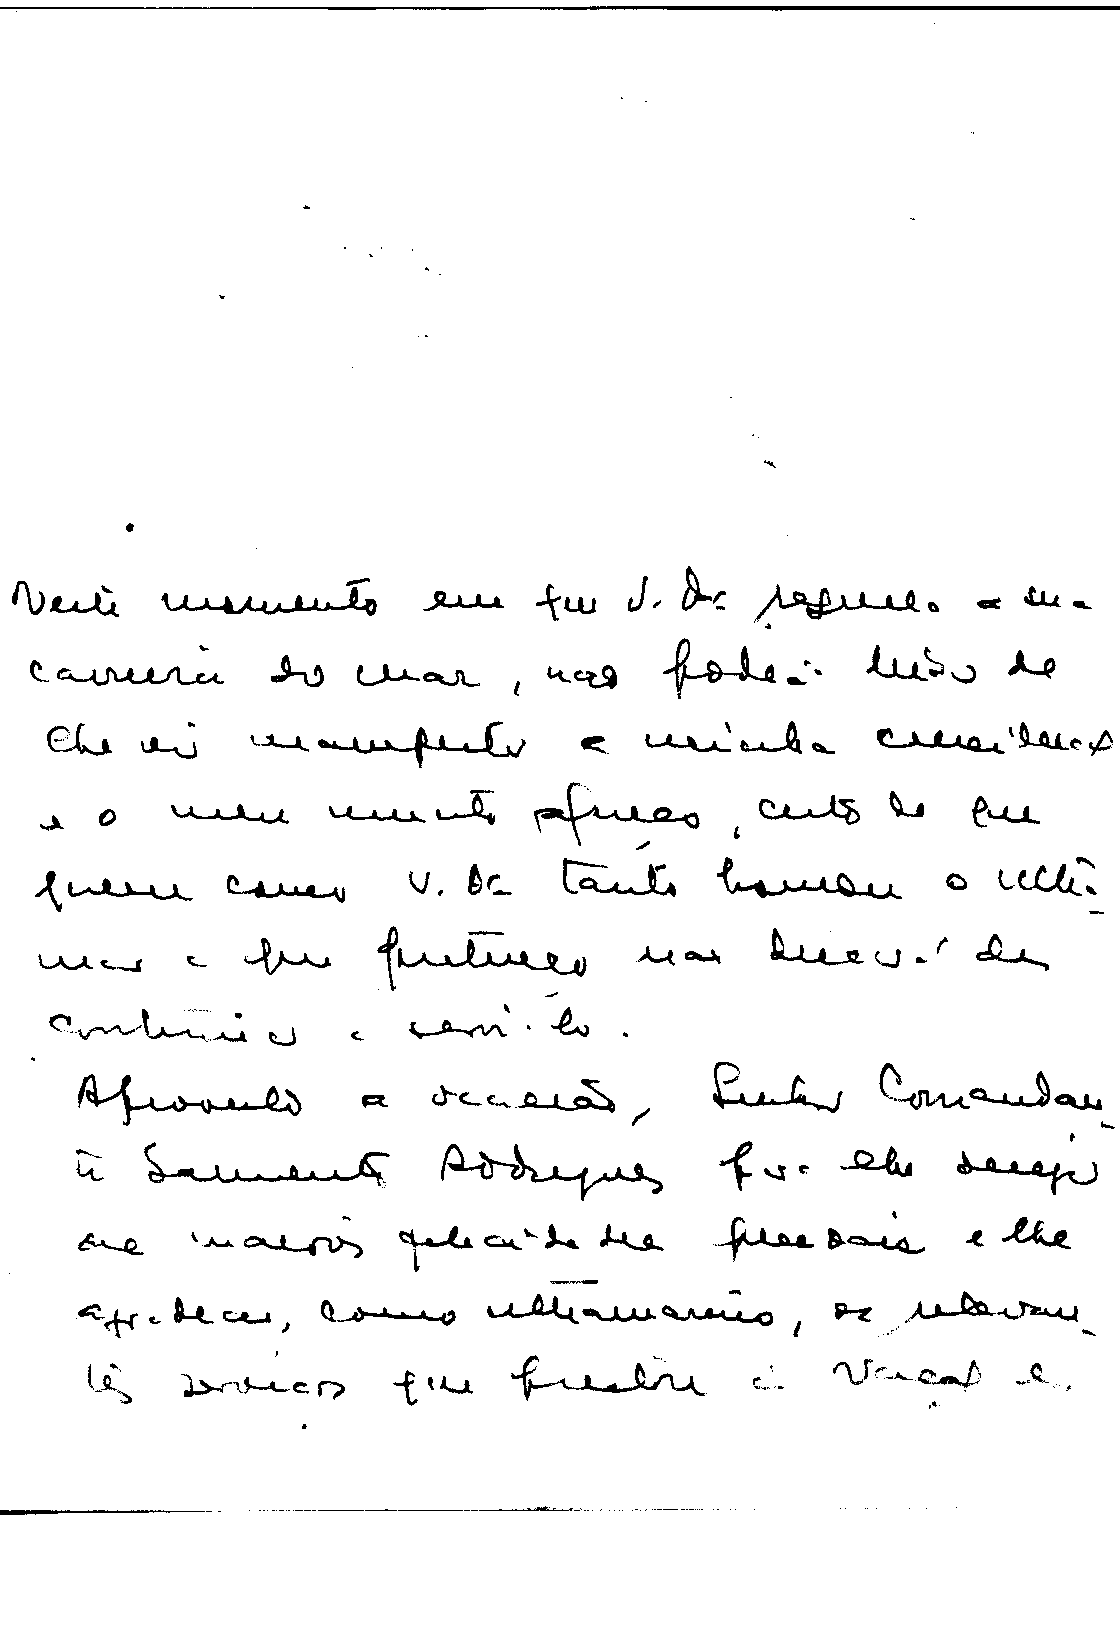 Neste momento em que V. Ex.ª regressa à sua
carreira do mar, não poderia deixar de
lhe vir manifestar a minha consideração
e o meu muito apreço, certo de que
quem como V. Ex.ª tanto honrou o Ultra-
mar a que pertenço não deixará de
continuar a servi-lo.
Aproveito a ocasião, Senhor Comandan-
te Sarmento Rodrigues para lhe desejar
as maiores felicidades pessoais e lhe
agradecer, como ultramarino, os relevan-
tes serviços que prestou à Nação e